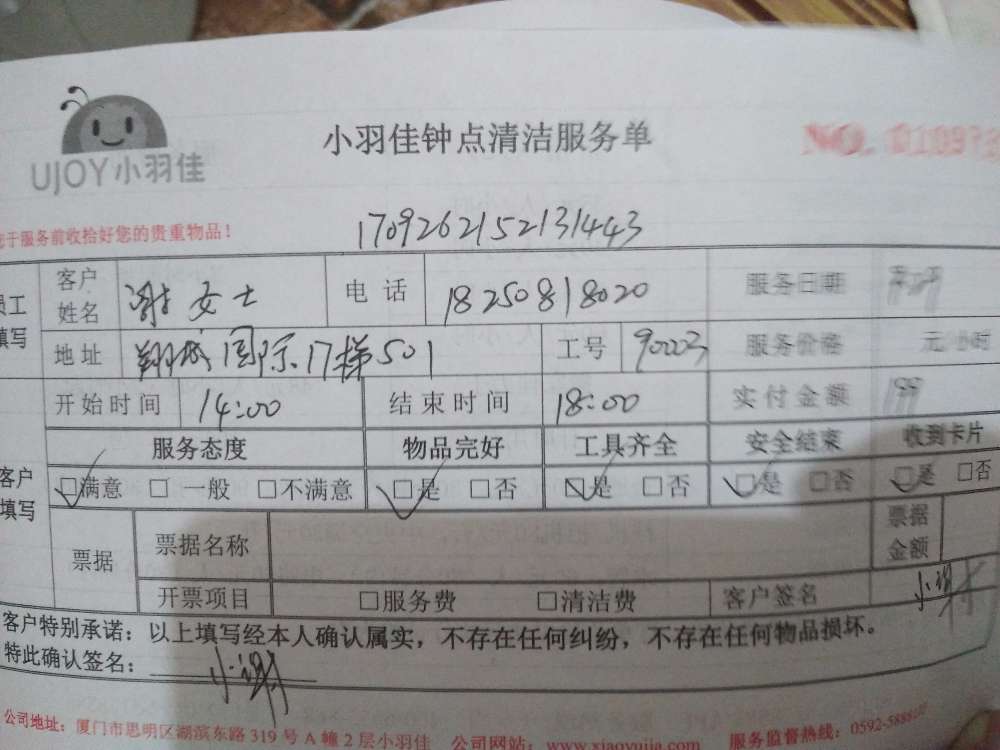 UJOY小羽佳
小羽佳钟点清洁服务单
NO.
于服务前收拾好您的贵重物品!
1709262152131443
员工填写 客户姓名 谢女士 电话 18250818020 服务日期
地址 翔城国际17梯501 工号 90003 服务价格 元/小时
开始时间 14:00 结束时间 18:00 实付金额
服务态度 物品完好 工具齐全 安全结束 收到卡片
客户填写 □满意 □一般 □不满意 □是 □否 □是 □否 □是 □否 □是 □否
票据 票据名称 票据金额
开票项目 □服务费 □清洁费 客户签名 小谢
客户特别承诺:以上填写经本人确认属实,不存在任何纠纷,不存在任何物品损坏。
特此确认签名: 小谢
公司地址:厦门市思明区湖滨东路319号A幢2层小羽佳 公司网站:www.xiaoyujia.com 服务监督热线:0592-